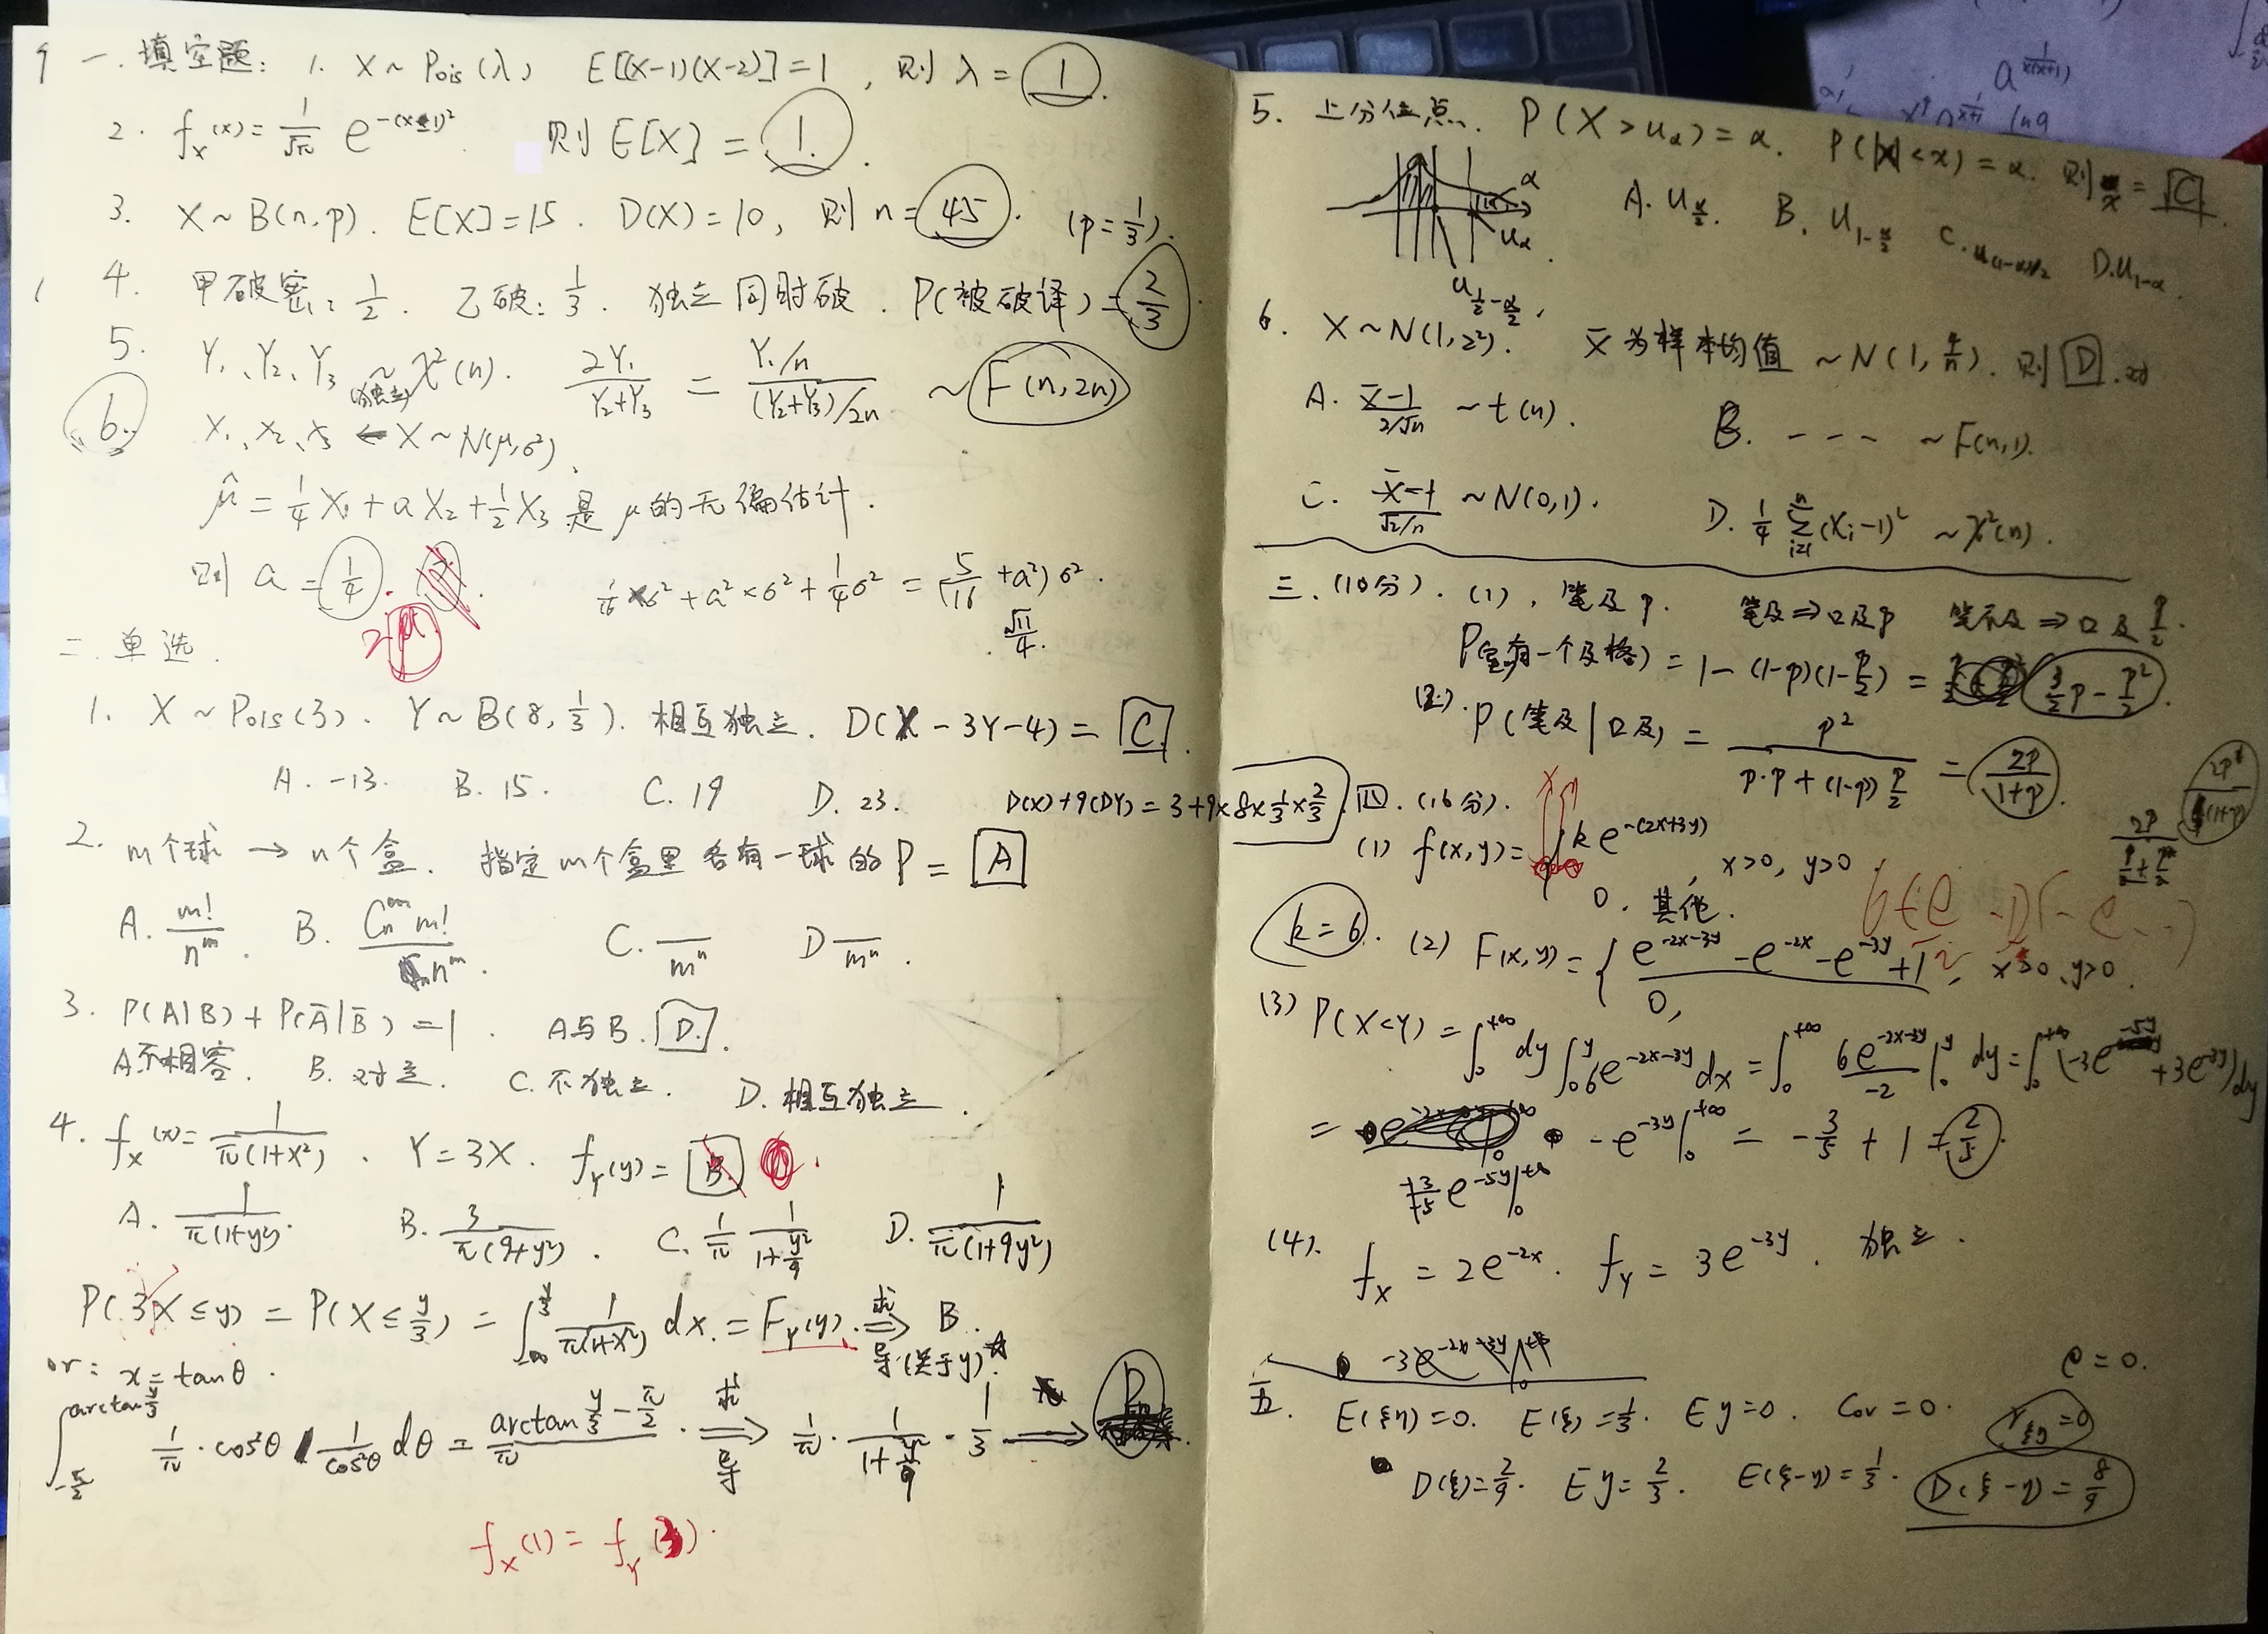 一. 填空题: 1. X ~ Pois(λ) E[(X-1)(X-2)]=1, 则 λ = 1.
2. f_X(x) = 1/√π e^{-(x-1)²} 则 E[X] = 1.
3. X ~ B(n,p). E[X]=15. D(X)=10, 则 n = 45. (p=1/3).
4. 甲破密: 1/2. 乙破: 1/3. 独立同时破. P(被破译) = 2/3
5. Y₁、Y₂、Y₃ ~ χ²(n). (独立) 2Y₁/(Y₂+Y₃) = (Y₁/n)/((Y₂+Y₃)/2n) ~ F(n,2n)
6. X₁、X₂、X₃ ← X ~ N(μ,σ²).
μ̂ = 1/4 X₁ + aX₂ + 1/2 X₃ 是 μ 的无偏估计.
则 a = 1/4. 1/16 × σ² + a² × σ² + 1/4 σ² = (5/16 + a²)σ².
√11/4.
二. 单选.
1. X ~ Pois(3). Y ~ B(8, 1/3). 相互独立. D(X-3Y-4) = C.
A. -13. B. 15. C. 19 D. 23. D(X)+9(DY) = 3+9×8×1/3×2/3
2. m个球 → n个盒. 指定m个盒里各有一球的P = A
A. m!/n^m. B. C_n^m m!/n^m. C. —/m^n D. —/m^n.
3. P(A|B) + P(Ā|B̄) = 1. A与B. D.
A 不相容. B. 对立. C. 不独立. D. 相互独立.
4. f_X(x) = 1/(π(1+x²)). Y = 3X. f_Y(y) = B
A. 1/(π(1+y²)). B. 3/(π(9+y²)). C. 1/π 1/(1+y²/9) D. 1/(π(1+9y²))
P(3X ≤ y) = P(X ≤ y/3) = ∫_{-∞}^{y/3} 1/(π(1+x²)) dx. = F_Y(y). 求导(关于y) ⇒ B.
or: x = tanθ.
∫_{-π/2}^{arctan y/3} 1/π · cos²θ 1/cos²θ dθ = (arctan y/3 - π/2)/π. 求导 ⇒ 1/π · 1/(1+y²/9) · 1/3 ⇒
f_X(1) = f_Y(3).
5. 上分位点. P(X > u_α) = α. P(|X| < x) = α. 则 x = C.
α
u_α
A. u_{α/2}. B. u_{1-α/2} C. u_{(1-α)/2} D. u_{1-α}.
u_{1/2-α/2}.
6. X ~ N(1,2²). X̄ 为样本均值 ~ N(1, 4/n). 则 D.
A. (X̄-1)/(2/√n) ~ t(n). B. - - - ~ F(n,1).
C. (X̄-1)/(√2/n) ~ N(0,1). D. 1/4 Σ_{i=1}^n (X_i-1)² ~ χ²(n).
三. (10分). (1). 笔及 p. 笔及 ⇒ 口及 p 笔不及 ⇒ 口及 p/2.
P(至有一个及格) = 1-(1-p)(1-p/2) = 3/2 p - p²/2.
(2). P(笔及|口及) = p²/(p·p+(1-p)p/2) = 2p/(1+p).
四. (16分).
(1) f(x,y) = { k e^{-(2x+3y)}, x>0, y>0
0. 其他.
k=6. (2) F(x,y) = { e^{-2x-3y} - e^{-2x} - e^{-3y} + 1, x>0, y>0.
0,
(3) P(X<Y) = ∫_0^{+∞} dy ∫_0^y 6e^{-2x-3y} dx = ∫_0^{+∞} 6e^{-2x-3y}/-2 |_0^y dy = ∫_0^{+∞} (-3e^{-5y} + 3e^{-3y}) dy
= 3/5 e^{-5y} |_0^{+∞} - e^{-3y} |_0^{+∞} = -3/5 + 1 = 2/5.
(4). f_X = 2e^{-2x}. f_Y = 3e^{-3y}. 独立.
ρ = 0.
五. E(ξη)=0. E(ξ)=1/3. Eη=0. Cov = 0. r_{ξη}=0
D(ξ)=2/9. Eη=2/3. E(ξ-η)=1/3. D(ξ-η)=8/9